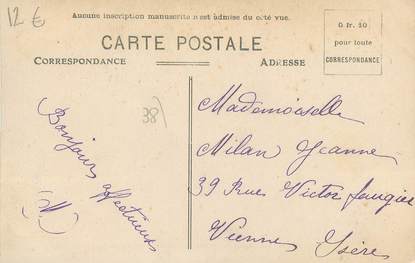 12 €
Aucune inscription manuscrite n'est admise du côté vue.
CARTE POSTALE
CORRESPONDANCE
ADRESSE
0 fr. 10
pour toute
CORRESPONDANCE
38
Bonjour
affectueux
(M)
Mademoiselle
Milan Jeanne
39 Rue Victor faugier
Vienne
Isère